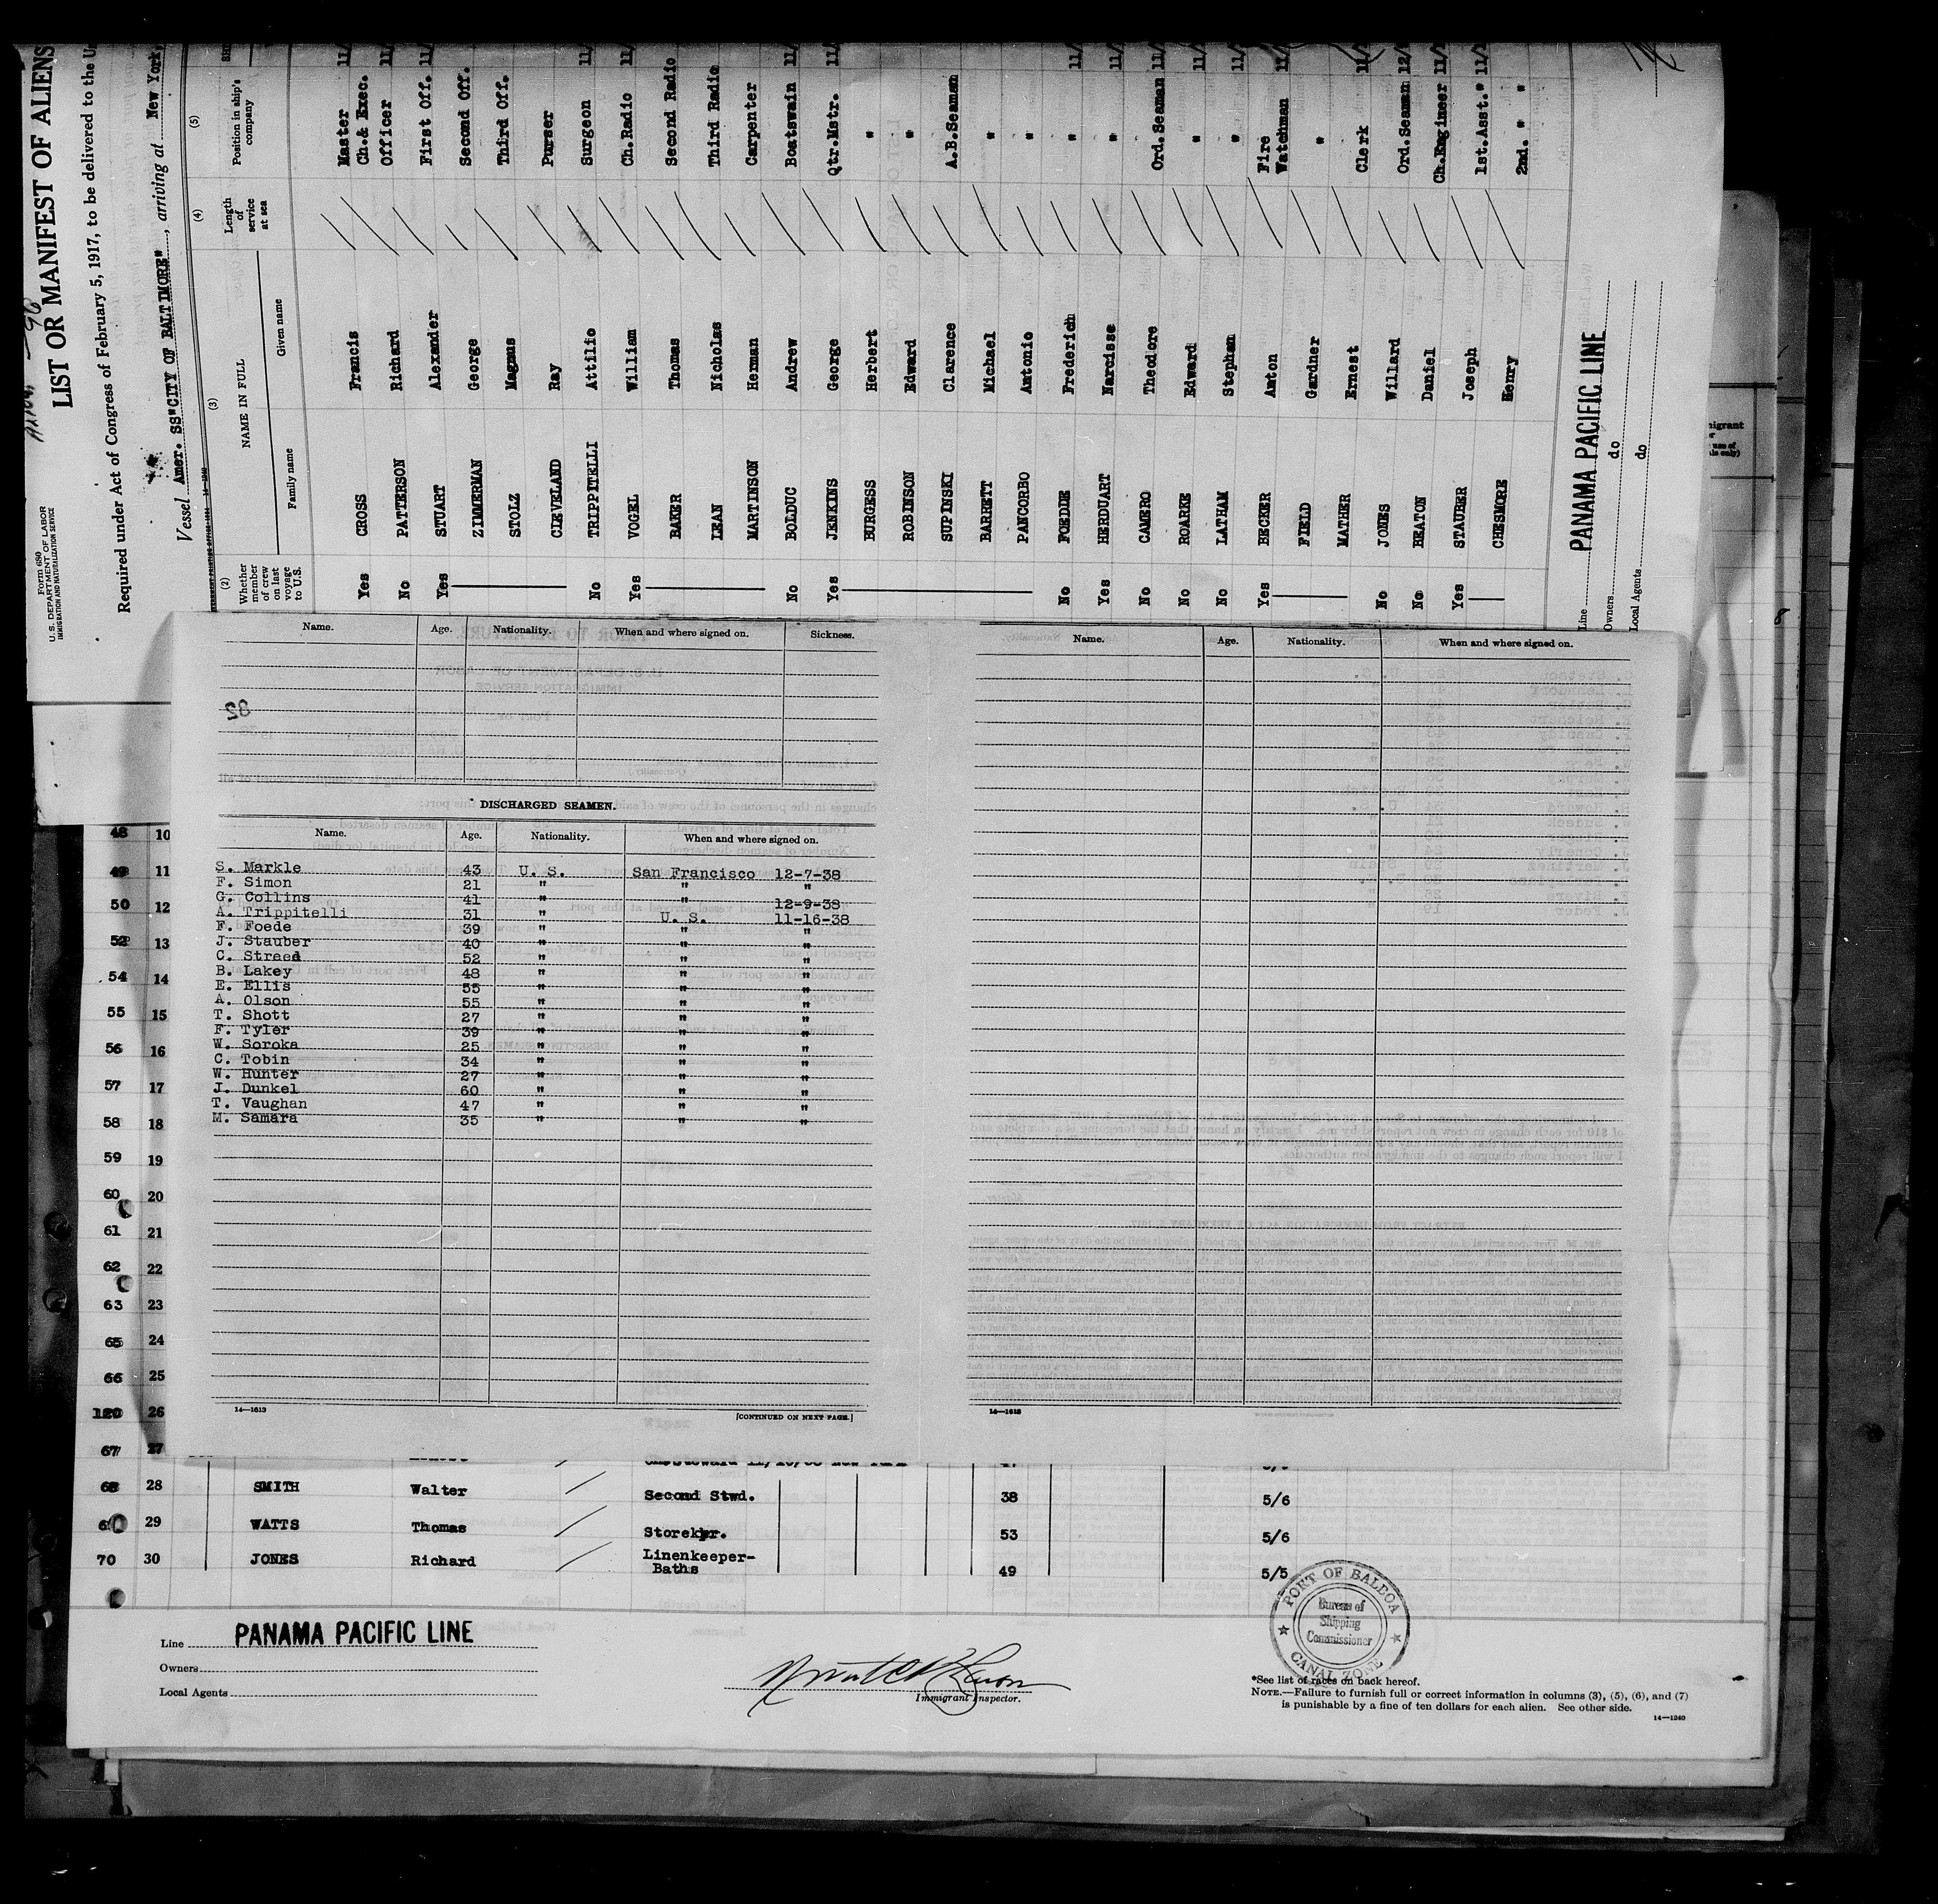 Form 680
U. S. DEPARTMENT OF LABOR
IMMIGRATION AND NATURALIZATION SERVICE
LIST OR MANIFEST OF ALIENS
Required under Act of Congress of February 5, 1917, to be delivered to the
Vessel Amer. SS"CITY OF BALTIMORE", arriving at New York,
(2) (3) (4) (5)
Whether member of crew on last voyage to U.S. NAME IN FULL Length of service at sea Position in ship's company
Family name Given name
Yes CROSS Francis Master
No PATTERSON Richard Ch.& Exec. Officer
Yes STUART Alexander First Off.
ZIMMERMAN George Second Off.
STOLZ Magnus Third Off.
CLEVELAND Ray Purser
No TRIPPITELLI Attilio Surgeon
Yes VOGEL William Ch.Radio
BAKER Thomas Second Radio
LEAN Nicholas Third Radio
MARTINSON Herman Carpenter
No BOLDUC Andrew Boatswain
Yes JENKINS George Qtr.Mstr.
BURGESS Herbert "
ROBINSON Edward "
SUPINSKI Clarence A.B.Seaman
BARRETT Michael "
PANCORBO Antonio "
No FOEDDE Frederich "
Yes HERDUART Narcisse "
No CAMERO Theodore Ord.Seaman
No ROARKE Edward "
No LATHAM Stephen "
Yes BECKER Anton Fire Watchman
FIELD Gardner "
MATHER Ernest Clerk
No JONES Willard Ord.Seaman
No BEATON Daniel Ch.Engineer
Yes STAUBER Joseph 1st.Asst."
CHESMORE Henry 2nd. " "
Line PANAMA PACIFIC LINE
Owners do
Local Agents do
Name. Age. Nationality. When and where signed on. Sickness.
82
DISCHARGED SEAMEN.
Name. Age. Nationality. When and where signed on.
S. Markle 43 U. S. San Francisco 12-7-38
F. Simon 21 " " "
G. Collins 41 " " 12-9-38
A. Trippitelli 31 " U. S. 11-16-38
F. Foede 39 " " "
J. Stauber 40 " " "
C. Streed 52 " " "
B. Lakey 48 " " "
E. Ellis 55 " " "
A. Olson 55 " " "
T. Shott 27 " " "
F. Tyler 39 " " "
W. Soroka 25 " " "
C. Tobin 34 " " "
W. Hunter 27 " " "
J. Dunkel 60 " " "
T. Vaughan 47 " " "
M. Samara 35 " " "
14—1613 [CONTINUED ON NEXT PAGE.]
Name. Age. Nationality. When and where signed on.
14—1613
48 10
49 11
50 12
52 13
54 14
55 15
56 16
57 17
58 18
59 19
60 20
61 21
62 22
63 23
65 24
66 25
120 26
67 27
68 28 SMITH Walter Second Stwd. 38 5/6
29 WATTS Thomas Storekpr. 53 5/6
70 30 JONES Richard Linenkeeper-Baths 49 5/5
PORT OF BALBOA
Bureau of
Shipping
Commissioner
CANAL ZONE
Line PANAMA PACIFIC LINE
Owners
Local Agents
Immigrant Inspector.
*See list of races on back hereof.
NOTE.—Failure to furnish full or correct information in columns (3), (5), (6), and (7)
is punishable by a fine of ten dollars for each alien. See other side.
14—1240